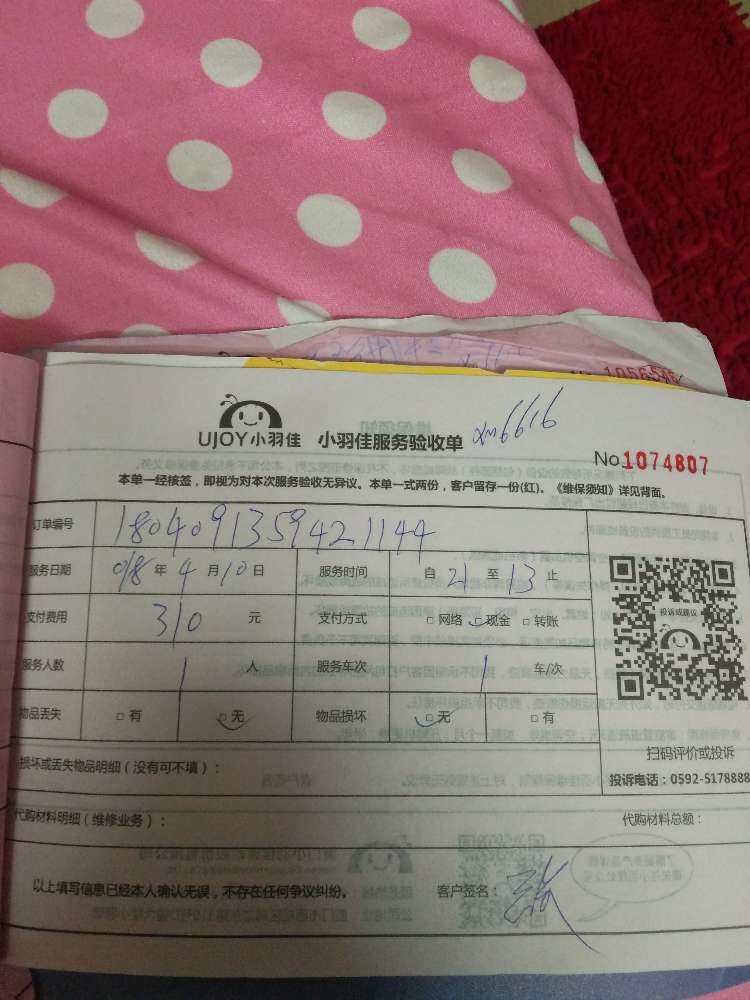 1056546
UJOY小羽佳 小羽佳服务验收单 xm6616
No 1074807
本单一经核签，即视为对本次服务验收无异议。本单一式两份，客户留存一份(红)。《维保须知》详见背面。
订单编号 1804091359421144
服务日期 018 年 4 月 10 日 服务时间 自 21 至 13 止
支付费用 310 元 支付方式 □ 网络 □ 现金 □ 转账
投诉或建议
服务人数 1 人 服务车次 1 车/次
物品丢失 □ 有 □ 无 物品损坏 □ 无 □ 有
扫码评价或投诉
损坏或丢失物品明细（没有可不填）：
投诉电话：0592-5178888
代购材料明细（维修业务）： 代购材料总额：
以上填写信息已经本人确认无误，不存在任何争议纠纷。 客户签名：